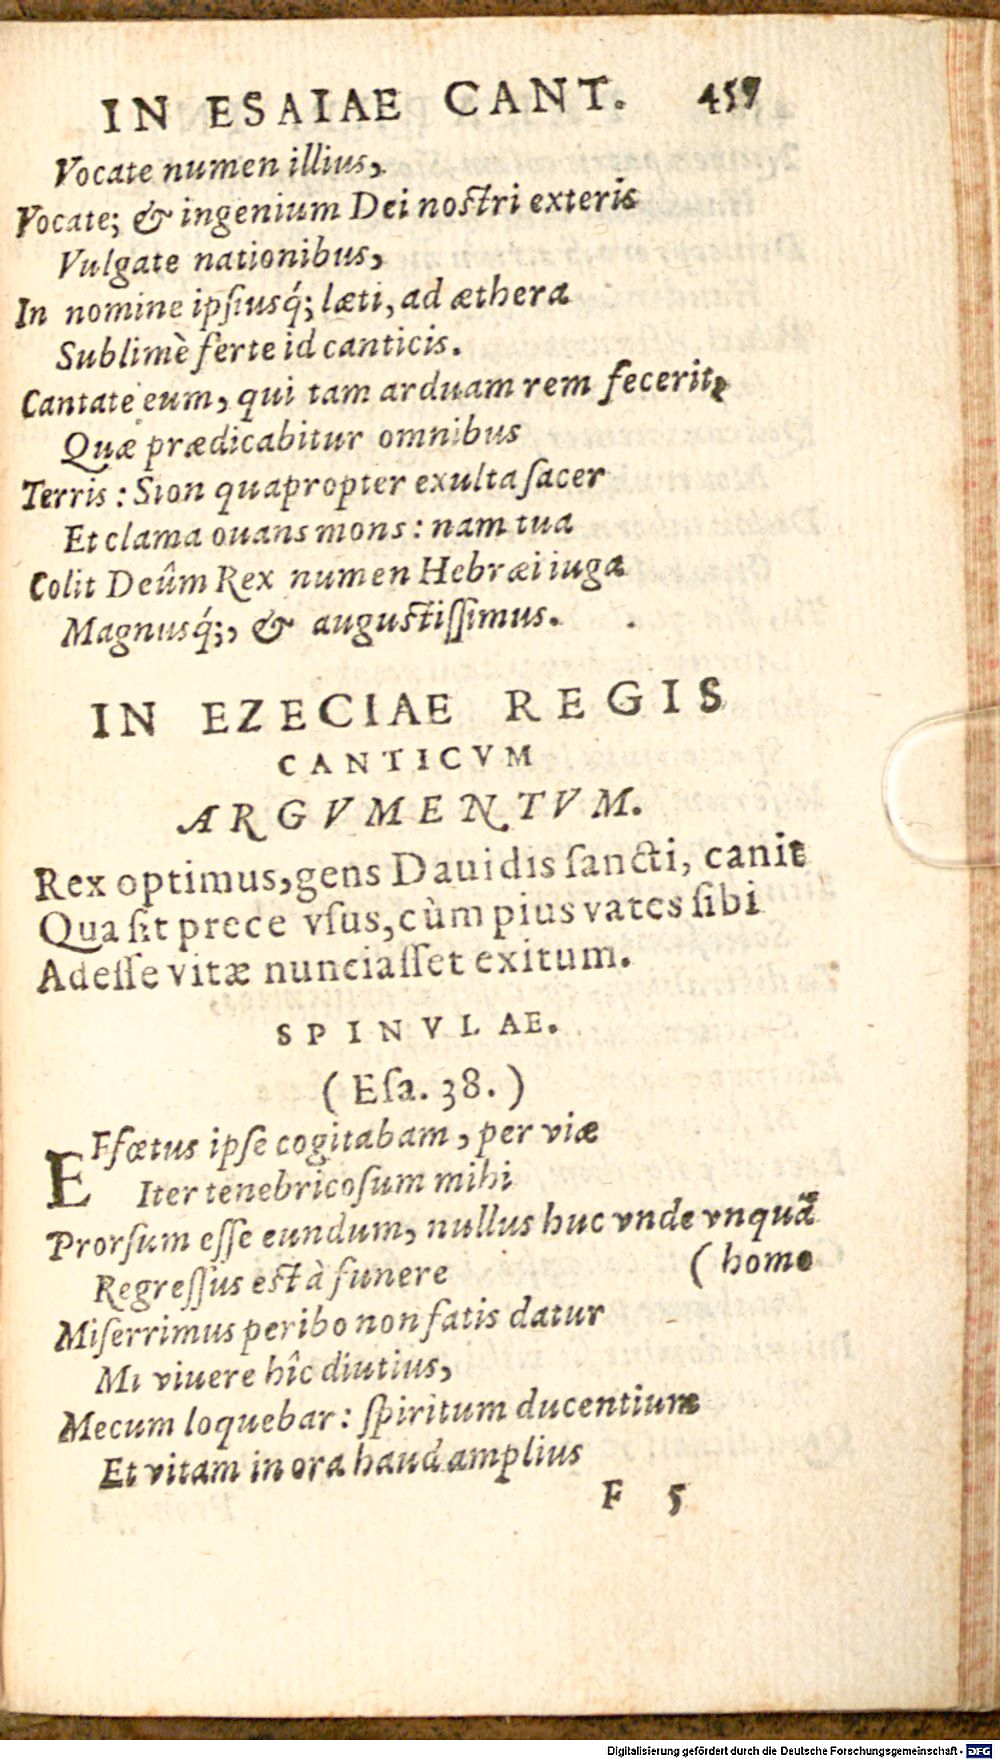 IN ESAIAE CANT. 457
Vocate numen illius,
Vocate; & ingenium Dei nostri exteris
Vulgate nationibus,
In nomine ipsiusq́; læti, ad æthera
Sublimè ferte id canticis.
Cantate eum, qui tam arduam rem fecerit,
Quæ prædicabitur omnibus
Terris: Sion quapropter exulta sacer
Et clama ouans mons: nam tua
Colit Deûm Rex numen Hebræi iuga
Magnusq́;, & augustissimus.
IN EZECIAE REGIS
CANTICVM
ARGVMENTVM.
Rex optimus, gens Dauidis sancti, canit
Qua sit prece vsus, cùm pius vates sibi
Adesse vitæ nunciasset exitum.
SPINVLAE.
(Esa. 38.)
EFfœtus ipse cogitabam, per viæ
Iter tenebricosum mihi
Prorsum esse eundum, nullus huc vnde vnquã
Regressus est à funere (homo
Miserrimus peribo non fatis datur
Mi viuere hîc diutius,
Mecum loquebar: spiritum ducentium
Et vitam in ora haud amplius
F 5
Digitalisierung gefördert durch die Deutsche Forschungsgemeinschaft - DFG